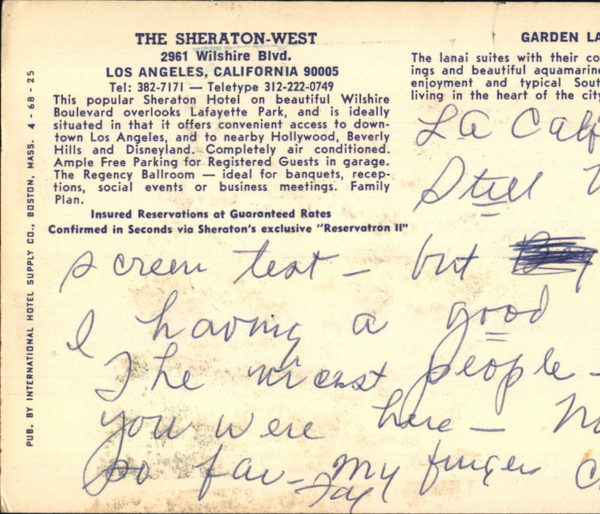 THE SHERATON-WEST
2961 Wilshire Blvd.
LOS ANGELES, CALIFORNIA 90005
Tel: 382-7171 — Teletype 312-222-0749
This popular Sheraton Hotel on beautiful Wilshire
Boulevard overlooks Lafayette Park, and is ideally
situated in that it offers convenient access to down-
town Los Angeles, and to nearby Hollywood, Beverly
Hills and Disneyland. Completely air conditioned.
Ample Free Parking for Registered Guests in garage.
The Regency Ballroom — ideal for banquets, recep-
tions, social events or business meetings. Family
Plan.
Insured Reservations at Guaranteed Rates
Confirmed in Seconds via Sheraton's exclusive "Reservatron II"
GARDEN LA
The lanai suites with their co
ings and beautiful aquamarine
enjoyment and typical Sout
living in the heart of the city
PUB. BY INTERNATIONAL HOTEL SUPPLY CO., BOSTON, MASS. 4-68-25
LA Calif
Still
screen test — but
I having a good
The nicest people —
you were here —
so far — my fingers